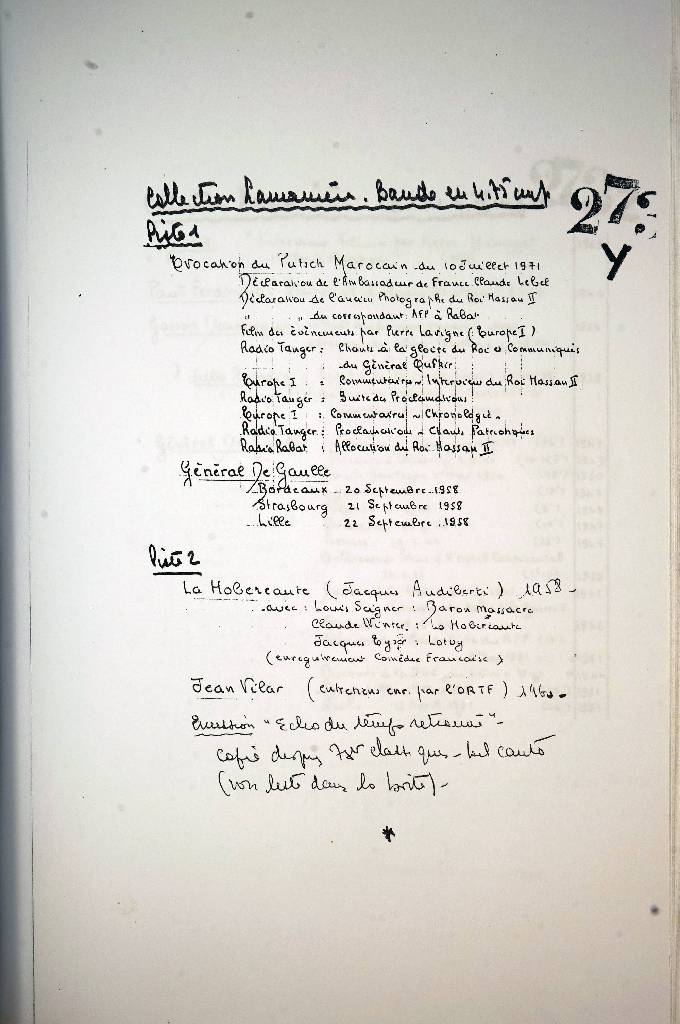 Collection Lamamière. Bande en 4.75 cm/s
27
Y
Piste 1
Evocation du Putsch Marocain du 10 Juillet 1971
Déclaration de l'Ambassadeur de France Claude Lebel
Déclaration de l'ancien Photographe du Roi Hassan II
" " du correspondant AFP à Rabat
Film des évènements par Pierre Lavigne (Europe I)
Radio Tanger : Chants à la gloire du Roi et Communiqués
du Général Oufkir
Europe I : Commentaires - Interview du Roi Hassan II
Radio Tanger : Suite des Proclamations
Europe I : Commentaires - Chronologie -
Radio Tanger : Proclamations - Chants Patriotiques
Radio Rabat : Allocution du Roi Hassan II
Général De Gaulle
Bordeaux 20 Septembre 1958
Strasbourg 21 Septembre 1958
Lille 22 Septembre 1958
Piste 2
La Hobereaute (Jacques Audiberti) 1958 -
avec : Louis Seigner : Baron Massacre
Claude Winter : La Hobereaute
Jacques Eyser : Lotvy
(enregistrement Comédie Française)
Jean Vilar (entretiens enr. par l'ORTF) 1960 -
Emission "Echo du temps retrouvé" -
copie disques classiques - bel canto
(voir liste dans la boîte) -
*